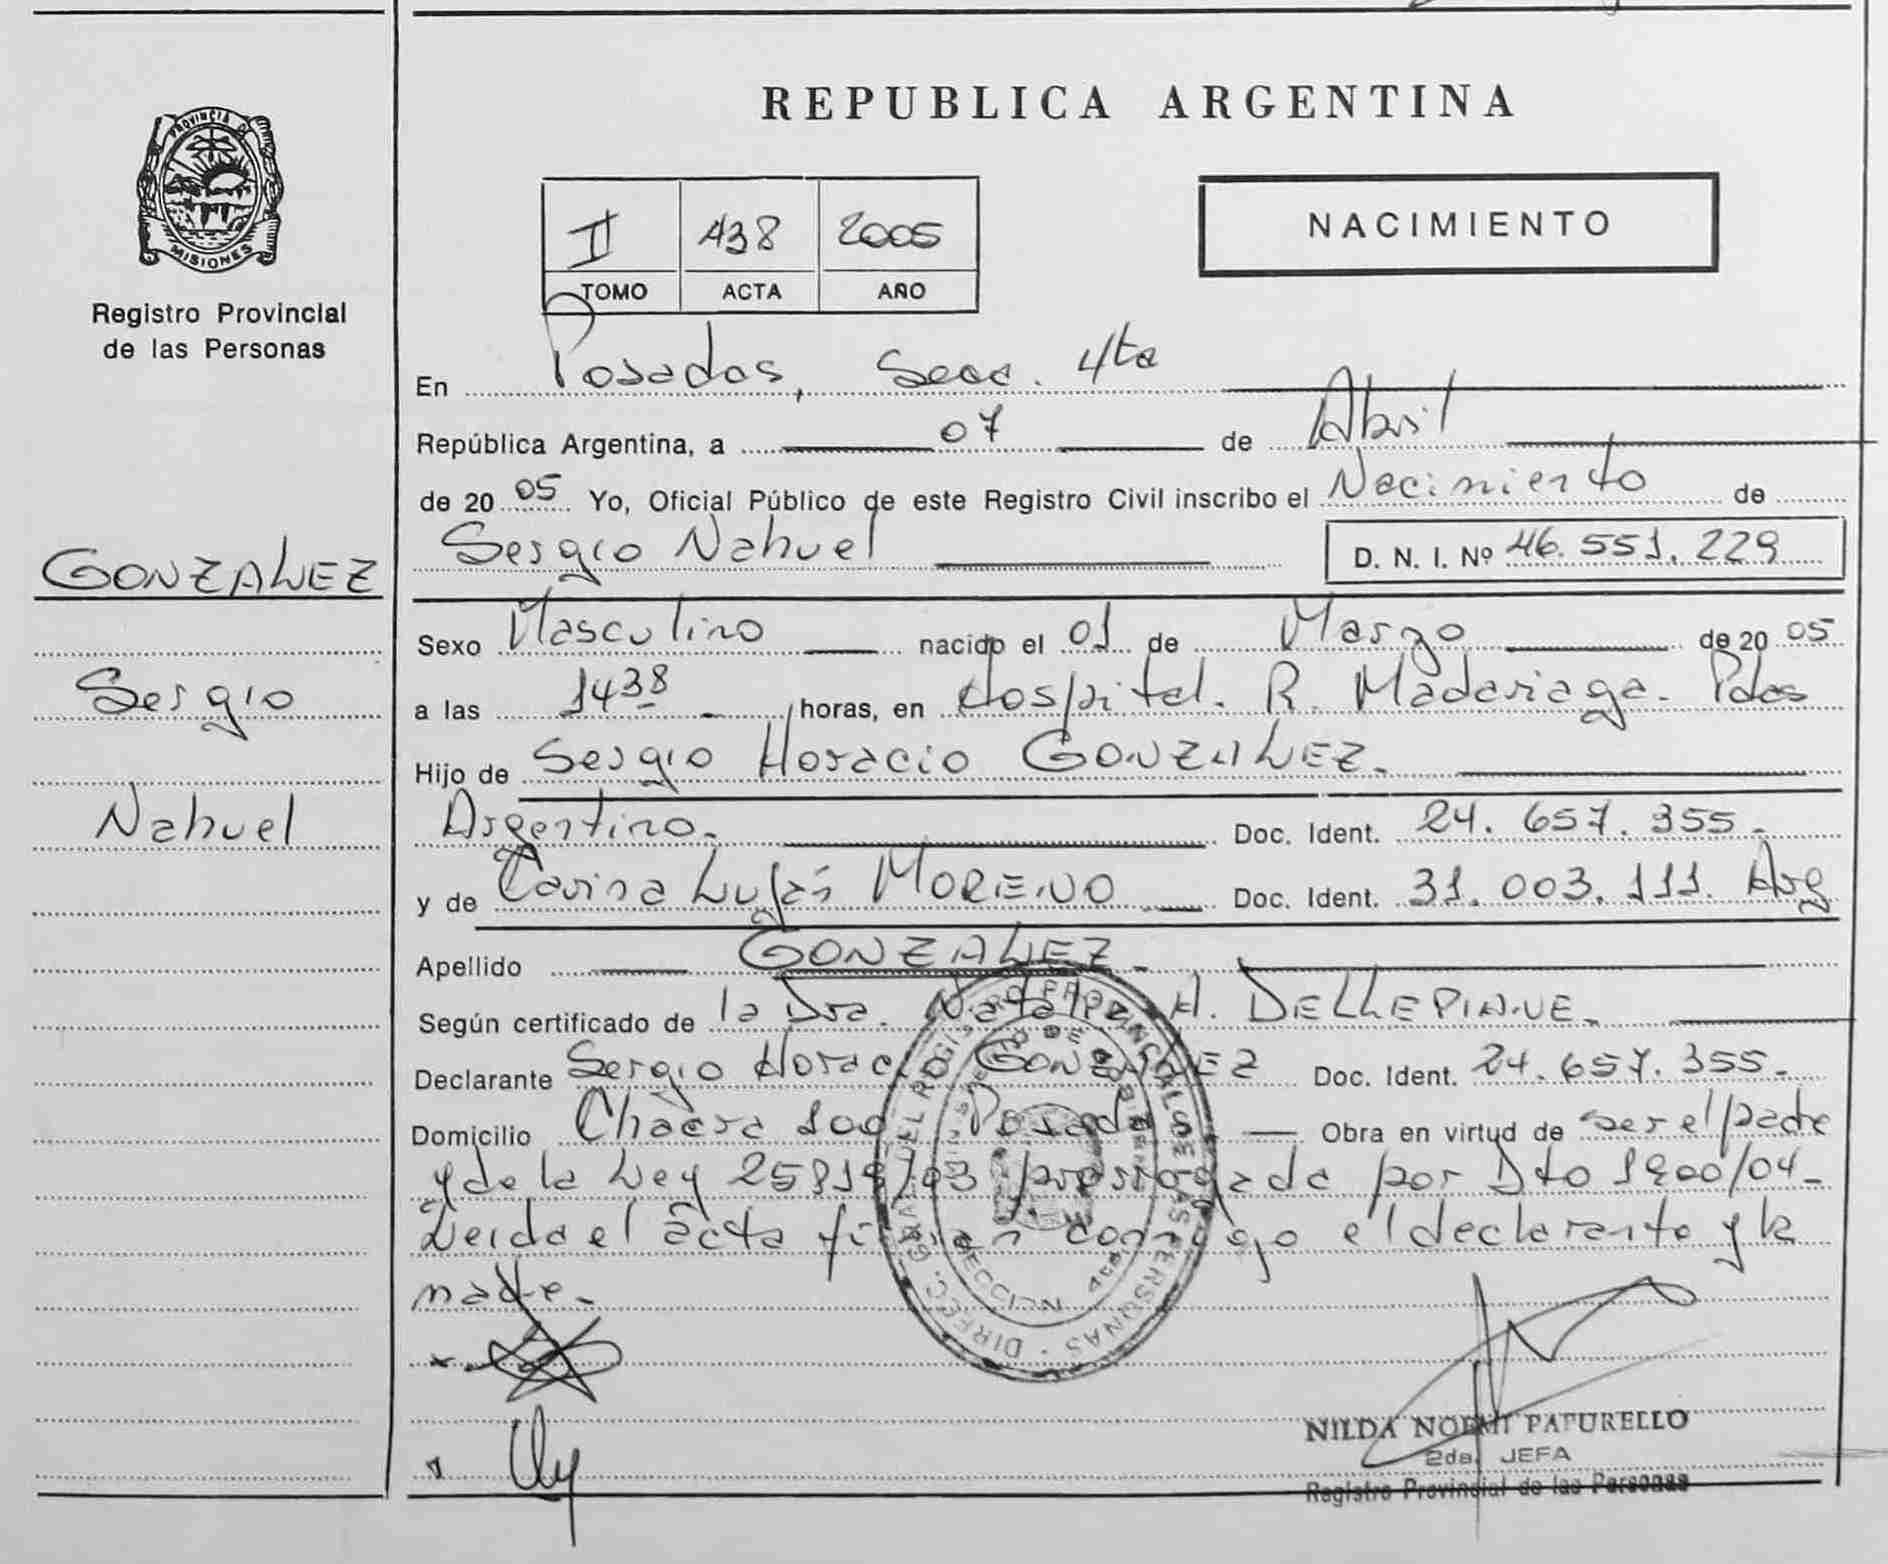 REPUBLICA ARGENTINA
PROVINCIA DE MISIONES
Registro Provincial
de las Personas
II 438 2005
TOMO ACTA AÑO
NACIMIENTO
En Posadas, Secc. 4ta
República Argentina, a 07 de Abril
de 20 05 Yo, Oficial Público de este Registro Civil inscribo el Nacimiento de
Sergio Nahuel D. N. I. Nº 46.551.229
GONZALEZ
Sergio
Nahuel
Sexo Masculino nacido el 01 de Marzo de 20 05
a las 14 38 horas, en Hospital. R. Madariaga. Pdas
Hijo de Sergio Horacio GONZALEZ.
Argentino. Doc. Ident. 24. 657. 355.
y de Carina Luján MORENO Doc. Ident. 31. 003. 111. Arg
Apellido GONZALEZ.
Según certificado de la Dra. Natalia A. DELLEPIANE.
Declarante Sergio Horacio GONZALEZ Doc. Ident. 24. 657. 355.
Domicilio Chacra 100 Posadas Obra en virtud de ser el padre
y de la Ley 25819/03 prorrogada por Dto 1900/04.
Leida el acta firman conmigo el declarante y la
madre.
DIRECC. GRAL. DEL REGISTRO PROVINCIAL DE LAS PERSONAS
NILDA NOEMI PATURELLO
2da. JEFA
Registro Provincial de las Personas